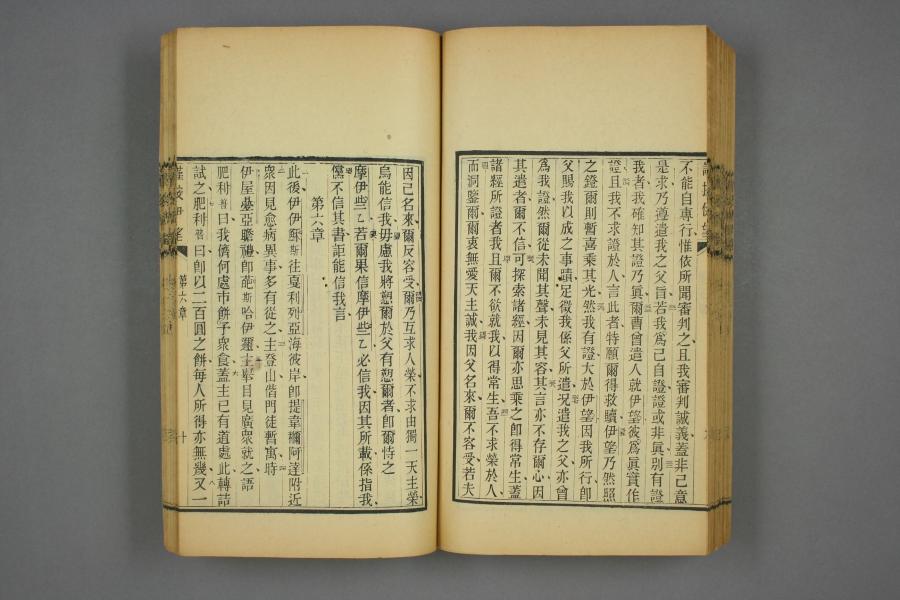 不能自專行惟依所聞審判之且我審判誠義蓋非己意
是求乃遵遣我之父旨若我爲己自證證或非眞別有證
我者我確知其證乃眞爾曹曾遣人就伊望彼爲眞實作
證且我不求證於人言此者特願爾得救贖伊望乃然照
之鐙爾則暫喜乘其光然我有證大於伊望因我所行卽
父賜我以成之事蹟足徵我係父所遣況遣我之父亦曾
爲我證然爾從未聞其聲未見其容其言亦不存爾心因
其遣者爾不信可探索諸經因爾亦思乘之卽得常生蓋
諸經所證者我且爾不欲就我以得常生吾不求榮於人
而洞鑒爾爾衷無愛天主誠我因父名來爾不容受若夫
因己名來爾反容受爾乃互求人榮不求由獨一天主榮
烏能信我毋慮我將愬爾於父有愬爾者卽爾恃之
摩伊些乙若爾果信摩伊些乙必信我因其所載係指我
儻不信其書詎能信我言
第六章
此後伊伊穌斯往戞利列亞海彼岸卽提韋爾阿達附近
衆因見愈病異事多有從之主登山偕門徒暫寓時
伊屋疊亞膽禮卽葩斯哈伊邇主擧目見廣衆就之語
肥利普曰我儕何處市餠予衆食蓋主已有道處此轉詰
試之肥利普曰卽以二百圓之餠每人所得亦無幾又一
第六章
十